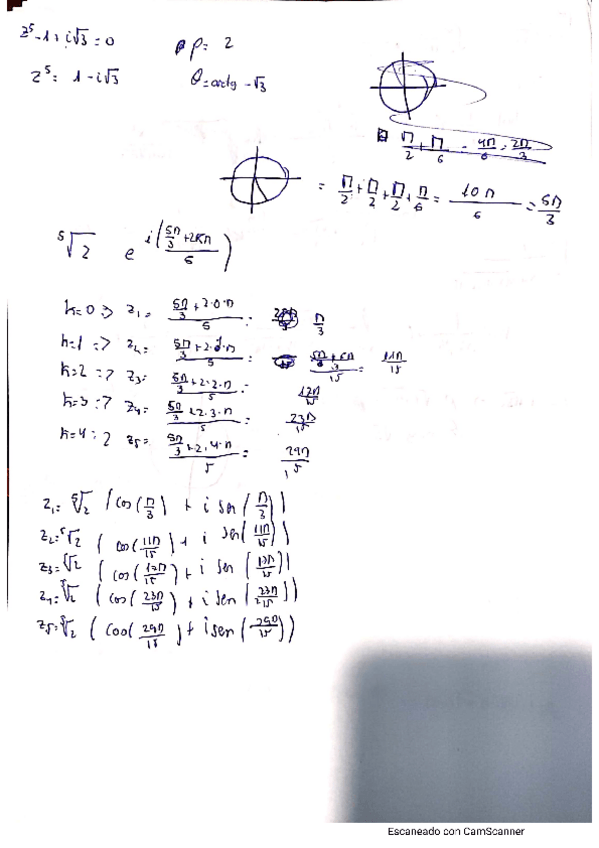 z⁵-1+i√3=0 ρ= 2
z⁵= 1-i√3 θ=arctg -√3
π/2 + π/6 = 4π/6 = 2π/3
= π/2 + π/2 + π/2 + π/6 = 10π/6 = 5π/3
⁵√2 e^i((5π/3+2kπ)/5)
k=0 => z₁= (5π/3+2·0·π)/5 = π/3
k=1 => z₂= (5π/3+2·1·π)/5 = (5π+6π/3)/15 = 11π/15
k=2 => z₃= (5π/3+2·2·π)/5 = 17π/15
k=3 => z₄= (5π/3+2·3·π)/5 = 23π/15
k=4 => z₅= (5π/3+2·4·π)/5 = 29π/15
z₁= ⁵√2 (cos(π/3) + i sen(π/3))
z₂= ⁵√2 (cos(11π/15) + i sen(11π/15))
z₃= ⁵√2 (cos(17π/15) + i sen(17π/15))
z₄= ⁵√2 (cos(23π/15) + i sen(23π/15))
z₅= ⁵√2 (cos(29π/15) + i sen(29π/15))
Escaneado con CamScanner